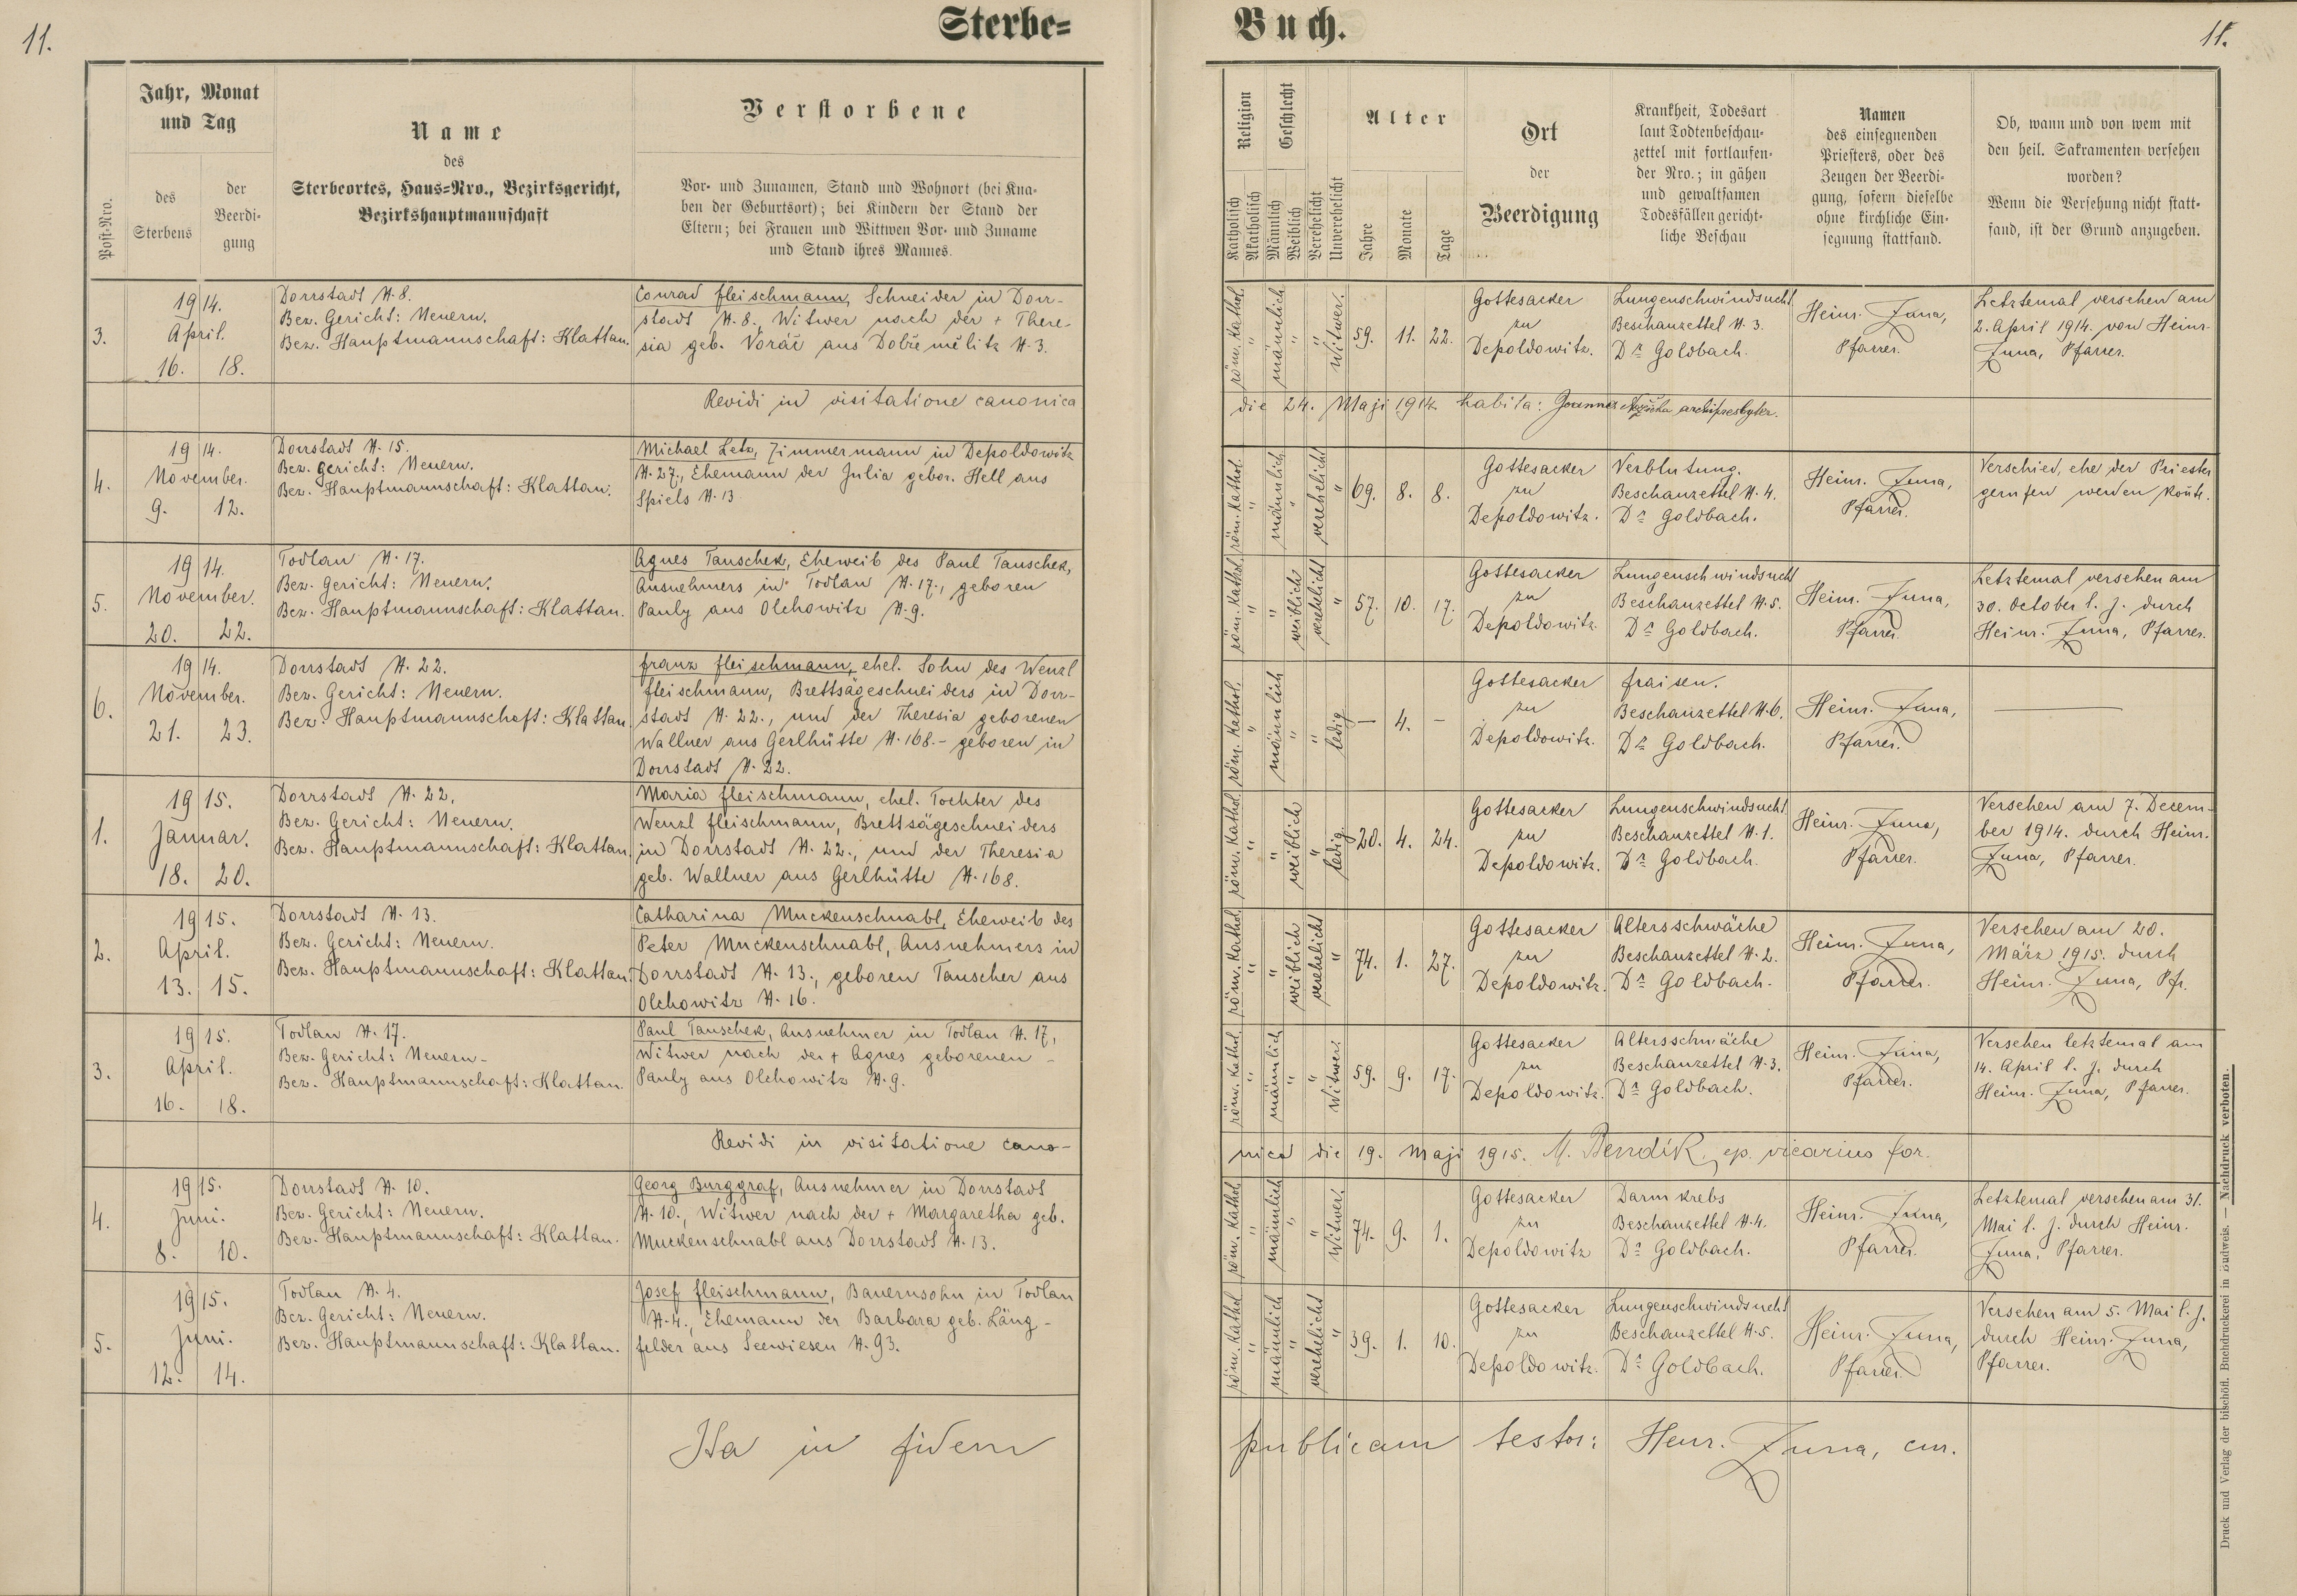 11.
Sterbe=
Buch.
11.
Post-Nro.
Jahr, Monat
und Tag
des
Sterbens
der
Beerdi-
gung
Name
des
Sterbeortes, Haus=Nro., Bezirksgericht,
Bezirkshauptmannschaft
Verstorbene
Vor- und Zunamen, Stand und Wohnort (bei Kna-
ben der Geburtsort); bei Kindern der Stand der
Eltern; bei Frauen und Wittwen Vor- und Zuname
und Stand ihres Mannes.
Religion
Katholisch
Akatholisch
Geschlecht
Männlich
Weiblich
Verehelicht
Unverehelicht
Alter
Jahre
Monate
Tage
Ort
der
Beerdigung
Krankheit, Todesart
laut Todtenbeschau-
zettel mit fortlaufen-
der Nro.; in gähen
und gewaltsamen
Todesfällen gericht-
liche Beschau
Namen
des einsegnenden
Priesters, oder des
Zeugen der Beerdi-
gung, sofern dieselbe
ohne kirchliche Ein-
segnung stattfand.
Ob, wann und von wem mit
den heil. Sakramenten versehen
worden?
Wenn die Versehung nicht statt-
fand, ist der Grund anzugeben.
3.
1914.
April.
16. 18.
Dorrstadt N. 8.
Bez. Gericht: Neuern.
Bez. Hauptmannschaft: Klattau.
Conrad Fleischmann, Schneider in Dorr-
stadt N. 8., Witwer nach der + There-
sia geb. Voráč aus Dobřemělitz N. 3.
röm. kathol.
"
männlich
"
"
Witwer.
59. 11. 22.
Gottesacker
zu
Depoldowitz.
Lungenschwindsucht
Beschauzettel N. 3.
Dr Goldbach.
Heinr. Zuna,
Pfarrer.
Letztemal versehen am
2. April 1914. von Heinr.
Zuna, Pfarrer.
Revidi in visitatione canonica
die 24. Maji 1914 habita: Joannes archipresbyter.
4.
1914.
November.
9. 12.
Dorrstadt N. 15.
Bez. Gericht: Neuern.
Bez. Hauptmannschaft: Klattau.
Michael Letz, Zimmermann in Depoldowitz
N. 27., Ehemann der Julia gebor. Hell aus
Spiels N. 13
röm. kathol.
"
männlich
"
verehelicht
"
69. 8. 8.
Gottesacker
zu
Depoldowitz.
Verblutung.
Beschauzettel N. 4.
Dr Goldbach.
Heinr. Zuna,
Pfarrer.
Verschied, ehe der Priester
gerufen werden konnte.
5.
1914.
November.
20. 22.
Todlau N. 17.
Bez. Gericht: Neuern.
Bez. Hauptmannschaft: Klattau.
Agnes Tauschek, Eheweib des Paul Tauschek,
Ausnehmers in Todlau N. 17., geboren
Pauly aus Olchowitz N. 9.
röm. kathol.
"
"
weiblich
verehelicht
"
57. 10. 17.
Gottesacker
zu
Depoldowitz.
Lungenschwindsucht
Beschauzettel N. 5.
Dr Goldbach.
Heinr. Zuna,
Pfarrer.
Letztemal versehen am
30. October l. J. durch
Heinr. Zuna, Pfarrer.
6.
1914.
November.
21. 23.
Dorrstadt N. 22.
Bez. Gericht: Neuern.
Bez. Hauptmannschaft: Klattau
Franz Fleischmann, ehel. Sohn des Wenzl
Fleischmann, Brettsägeschneiders in Dorr-
stadt N. 22., und der Theresia geborenen
Wallner aus Gerlhütte N. 168. - geboren in
Dorrstadt N. 22.
röm. kathol.
"
männlich
"
"
ledig
— 4. -
Gottesacker
zu
Depoldowitz.
Fraisen.
Beschauzettel N. 6.
Dr Goldbach.
Heinr. Zuna,
Pfarrer.
—
1.
1915.
Januar.
18. 20.
Dorrstadt N. 22.
Bez. Gericht: Neuern.
Bez. Hauptmannschaft: Klattau.
Maria Fleischmann, ehel. Tochter des
Wenzl Fleischmann, Brettsägeschneiders
in Dorrstadt N. 22., und der Theresia
geb. Wallner aus Gerlhütte N. 168.
röm. kathol.
"
"
weiblich
"
ledig.
20. 4. 24.
Gottesacker
zu
Depoldowitz.
Lungenschwindsucht
Beschauzettel N. 1.
Dr Goldbach.
Heinr. Zuna,
Pfarrer.
Versehen am 7. Decem-
ber 1914. durch Heinr.
Zuna, Pfarrer.
2.
1915.
April.
13. 15.
Dorrstadt N. 13.
Bez. Gericht: Neuern.
Bez. Hauptmannschaft: Klattau.
Catharina Muckenschnabl, Eheweib des
Peter Muckenschnabl, Ausnehmers in
Dorrstadt N. 13., geboren Tauscher aus
Olchowitz N. 16.
röm. kathol.
"
"
weiblich
verehelicht
"
74. 1. 27.
Gottesacker
zu
Depoldowitz.
Altersschwäche
Beschauzettel N. 2.
Dr Goldbach.
Heinr. Zuna,
Pfarrer.
Versehen am 20.
März 1915. durch
Heinr. Zuna, Pfr.
3.
1915.
April.
16. 18.
Todlau N. 17.
Bez. Gericht: Neuern.
Bez. Hauptmannschaft: Klattau.
Paul Tauschek, Ausnehmer in Todlau N. 17,
Witwer nach der + Agnes geborenen -
Pauly aus Olchowitz N. 9.
röm. kathol.
"
männlich
"
"
Witwer.
59. 9. 17.
Gottesacker
zu
Depoldowitz.
Altersschwäche
Beschauzettel N. 3.
Dr Goldbach.
Heinr. Zuna,
Pfarrer.
Versehen letztemal am
14. April l. J. durch
Heinr. Zuna, Pfarrer.
Revidi in visitatione cano-
nica die 19. Maji 1915. M. Bendík, ep. vicarius for.
4.
1915.
Juni.
8. 10.
Dorrstadt N. 10.
Bez. Gericht: Neuern.
Bez. Hauptmannschaft: Klattau.
Georg Burggraf, Ausnehmer in Dorrstadt
N. 10., Witwer nach der + Margaretha geb.
Muckenschnabl aus Dorrstadt N. 13.
röm. kathol.
"
männlich
"
"
Witwer.
74. 9. 1.
Gottesacker
zu
Depoldowitz
Darmkrebs
Beschauzettel N. 4.
Dr Goldbach.
Heinr. Zuna,
Pfarrer.
Letztemal versehen am 31.
Mai l. J. durch Heinr.
Zuna, Pfarrer.
5.
1915.
Juni.
12. 14.
Todlau N. 4.
Bez. Gericht: Neuern.
Bez. Hauptmannschaft: Klattau.
Josef Fleischmann, Bauernsohn in Todlau
N. 4., Ehemann der Barbara geb. Läng-
felder aus Seewiesen N. 93.
röm. kathol
"
männlich
"
verehelicht
"
39. 1. 10.
Gottesacker
zu
Depoldowitz.
Lungenschwindsucht
Beschauzettel N. 5.
Dr Goldbach.
Heinr. Zuna,
Pfarrer.
Versehen am 5. Mai l. J.
durch Heinr. Zuna,
Pfarrer.
Ita in fidem
publicam testor: Henr. Zuna, cur.
Druck und Verlag der bischöfl. Buchdruckerei in Budweis. — Nachdruck verboten.